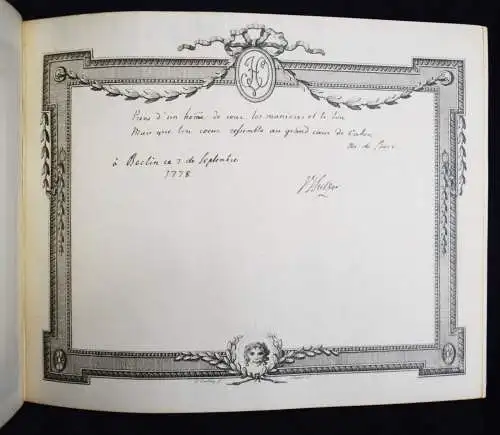 H
Prens d'un home de cour les manieres et le ton
Mais que ton coeur ressemble au grand cœur de
à Berlin ce 7 de Septembre
1778